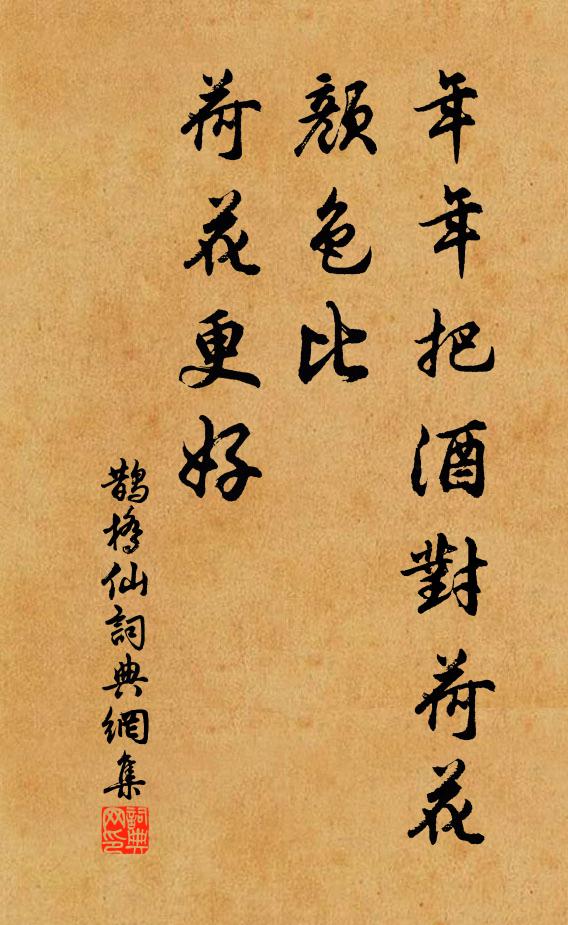 年年把酒對荷花
顏色比
荷花更好
鹊橋仙詞典網集
詞典
网印